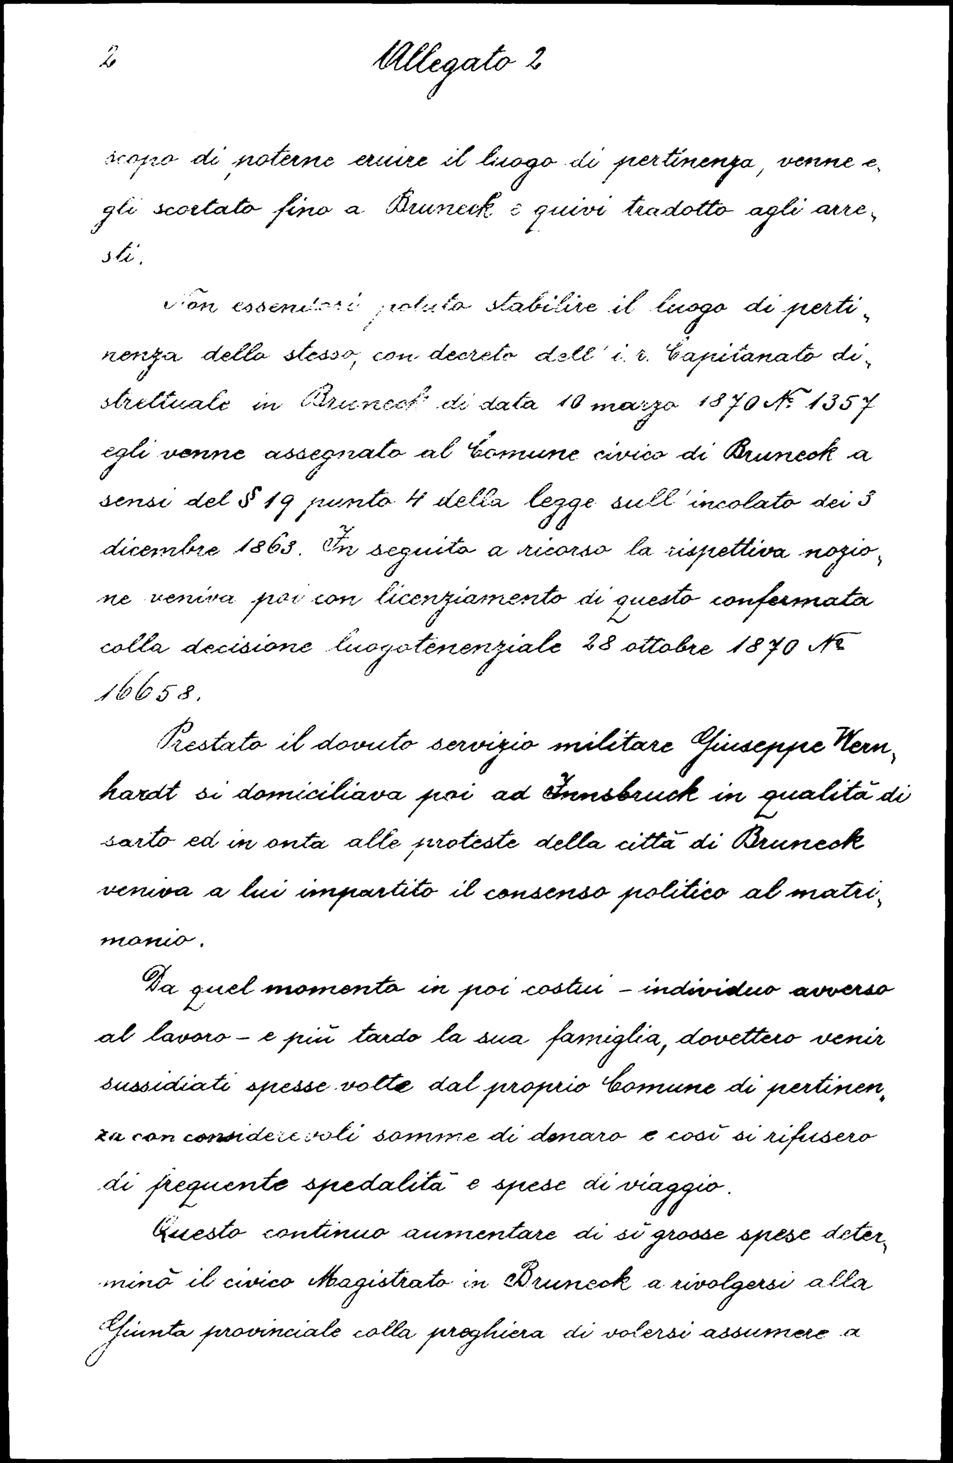 2 Allegato 2
scopo di poterne eruire il luogo di pertinenza, venne e„
gli scortato fino a Bruneck e quivi tradotto agli arre„
sti.
Non essendosi potuto stabilire il luogo di perti„
nenza dello stesso, con decreto dell' i. r. Capitanato di„
strettuale in Bruneck di data 10 marzo 1870 No 1357
egli venne assegnato al Comune civico di Bruneck a
sensi del § 19 punto 4 della legge sull' incolato dei 3
dicembre 1863. In seguito a ricorso la rispettiva nozio„
ne veniva poi con licenziamento di questo confermata
colla decisione luogotenenziale 28 ottobre 1870 No
16658.
Prestato il dovuto servizio militare Giuseppe Wern„
hardt si domiciliava poi ad Innsbruck in qualità di
sarto ed in onta alle proteste della città di Bruneck
veniva a lui impartito il consenso politico al matri„
monio.
Da quel momento in poi costui – individuo avverso
al lavoro – e più tardo la sua famiglia, dovettero venir
sussidiati spesse volte dal proprio Comune di pertinen„
za con considerevoli somme di denaro e così si rifusero
di frequente spedalità e spese di viaggio.
Questo continuo aumentare di sì grosse spese deter„
minò il civico Magistrato in Bruneck a rivolgersi alla
Giunta provinciale colla preghiera di volersi assumere a